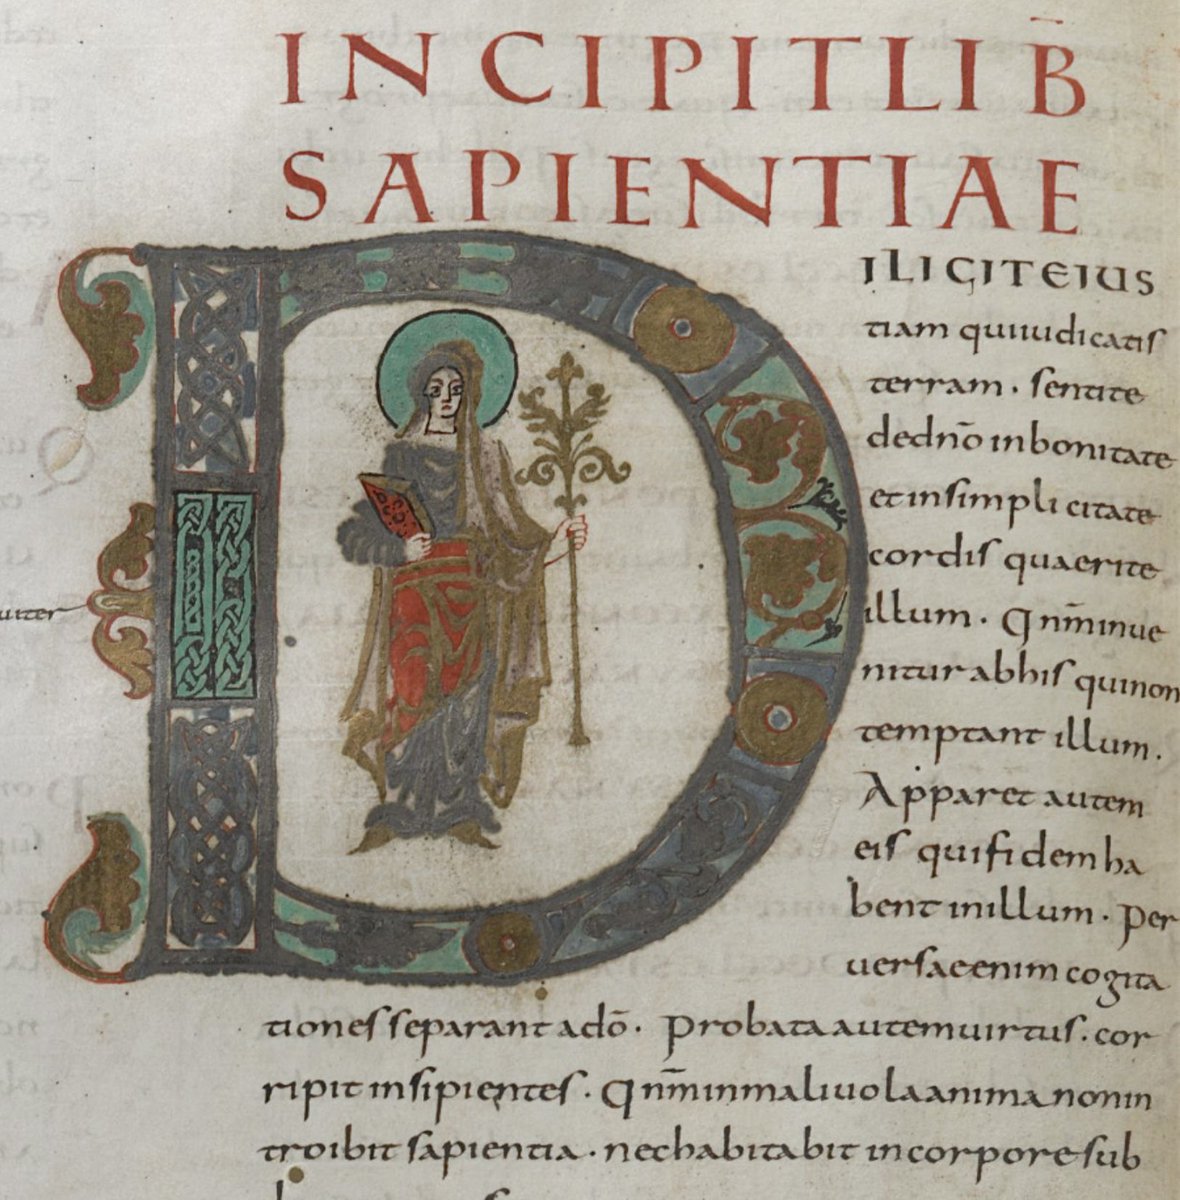 INCIPIT LIB̅
SAPIENTIAE
DILIGITE IUS
tiam qui iudicatis
terram. sentite
de dn̄o in bonitate
et in simplicitate
cordis quaerite
illum. Qnm̄ inue
nitur ab his qui non
temptant illum.
Apparet autem
eis qui fidem ha
bent in illum. Per
uersae enim cogita
tiones separant a dō. Probata autem uirtus. cor
ripit insipientes. Qnm̄ in maliuola anima non in
troibit sapientia. nec habitabit in corpore sub